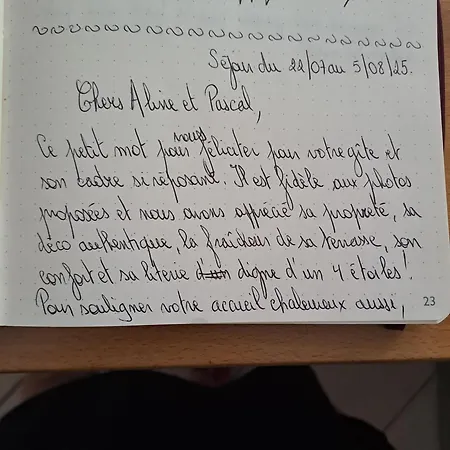 Séjour du 22/07 au 5/08/25.
Chers Aline et Pascal,
Ce petit mot pour nous féliciter pour votre gîte et
son cadre si reposant. Il est fidèle aux photos
proposées et nous avons apprécié sa propreté, sa
déco authentique, la fraîcheur de sa terrasse, son
confort et sa literie digne d'un 4 étoiles !
Pour souligner votre accueil chaleureux aussi,
23